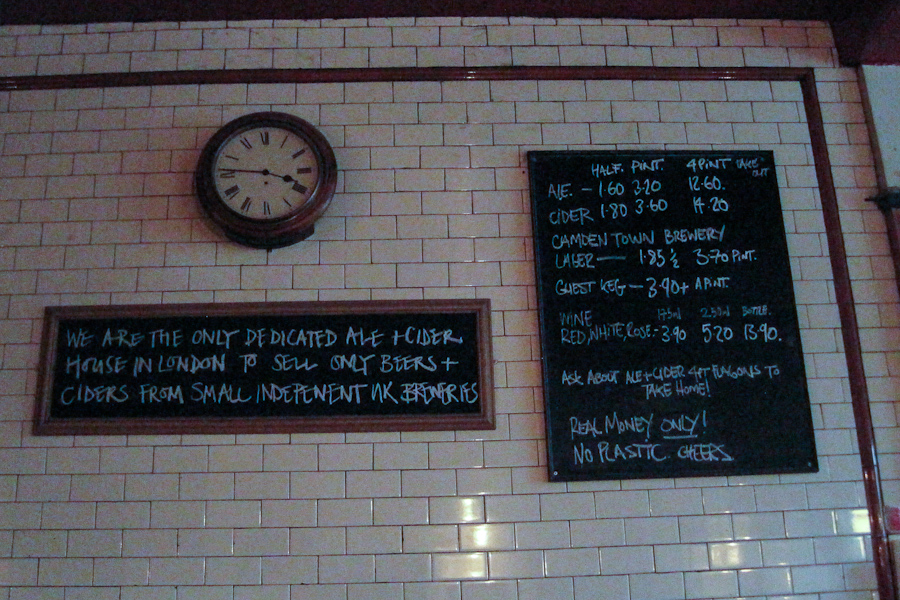 WE ARE THE ONLY DEDICATED ALE + CIDER
HOUSE IN LONDON TO SELL ONLY BEERS +
CIDERS FROM SMALL INDEPENENT UK BREWERIES
HALF. PINT. 4 PINT TAKE-OUT
ALE. - 1.60 3.20 12.60.
CIDER 1.80 3.60 14.20
CAMDEN TOWN BREWERY
LAGER — 1.85 ½ 3.70 PINT.
GUEST KEG — 3.90+ A PINT.
WINE 175ml 250ml BOTTLE.
RED, WHITE, ROSE. - 3.90 5.20 13.90.
ASK ABOUT ALE + CIDER 4PT FLAGONS TO
TAKE HOME!
REAL MONEY ONLY!
NO PLASTIC. CHEERS